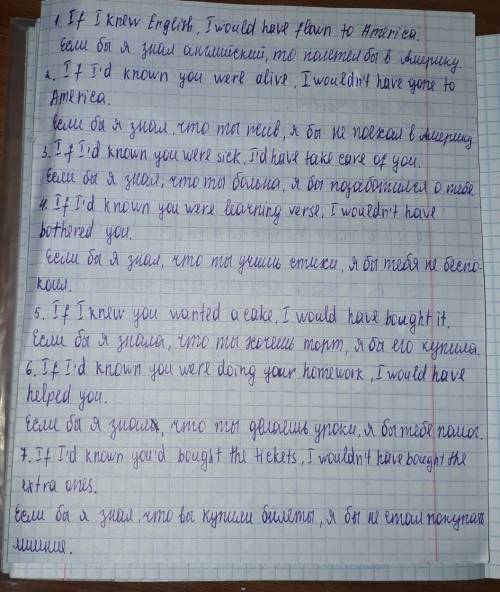 1. If I knew English, I would have flown to America.
Если бы я знал английский, то полетел бы в Америку
2. If I'd known you were alive, I wouldn't have gone to
America.
Если бы я знал, что ты жив, я бы не поехал в Америку
3. If I'd known you were sick, I'd have take care of you.
Если бы я знал, что ты больна, я бы позаботился о тебе
4. If I'd known you were learning verse, I wouldn't have
bothered you.
Если бы я знал, что ты учишь стихи, я бы тебя не беспо-
коил.
5. If I knew you wanted a cake, I would have bought it.
Если бы я знала, что ты хочешь торт, я бы его купила.
6. If I'd known you were doing your homework, I would have
helped you.
Если бы я знал, что ты делаешь уроки, я бы тебе помог.
7. If I'd known you'd bought the tickets, I wouldn't have bought the
extra ones.
Если бы я знал, что вы купили билеты, я бы не стал покупать
лишние.